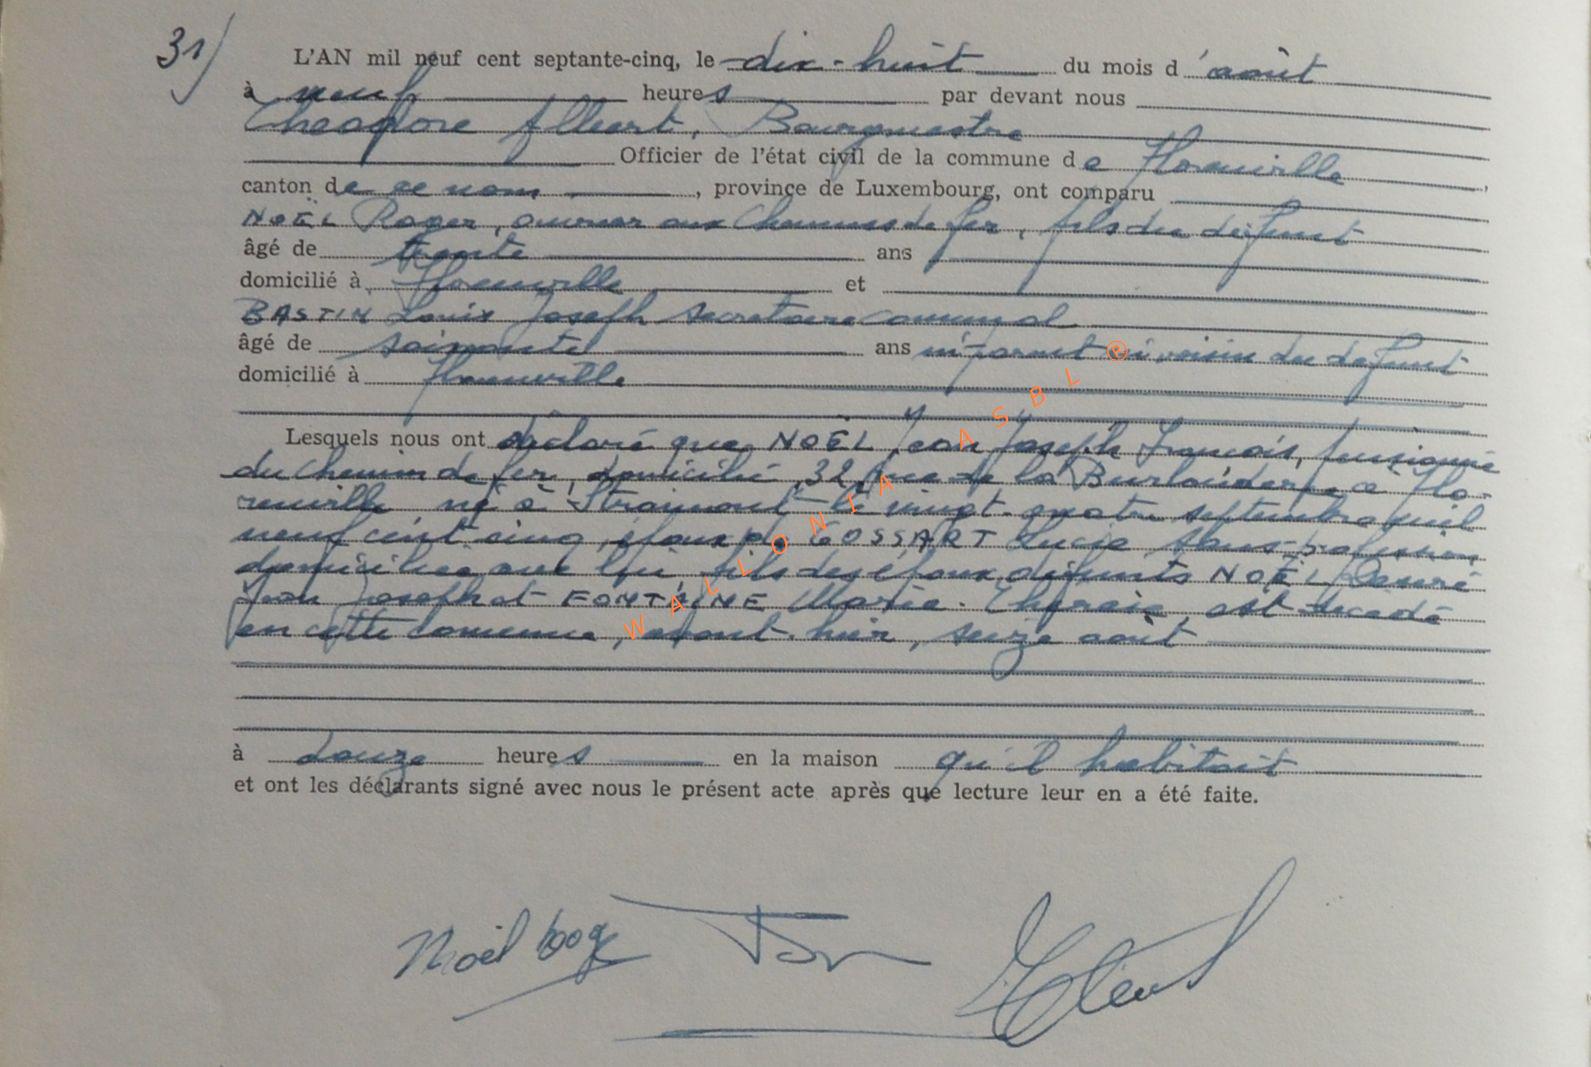 31/
L'AN mil neuf cent septante-cinq, le dix-huit du mois d'août
à neuf heures par devant nous
Théodore Albert, Bourgmestre
Officier de l'état civil de la commune de Florenville
canton de ce nom, province de Luxembourg, ont comparu
NOËL Roger, ouvrier aux Chemins de fer, fils du défunt
âgé de trente ans
domicilié à Florenville et
BASTIN Louis Joseph secrétaire communal
âgé de soixante ans voisin du défunt
domicilié à Florenville
Lesquels nous ont déclaré que NOËL Jean Joseph François, pensionné
du Chemin de fer, domicilié, 32, rue de la à Flo-
renville né à Straimont le vingt-quatre septembre mil
neuf cent cinq, époux de GOSSART Lucie sans profession
domiciliée avec lui, fils des époux défunts NOËL Désiré
Jean Joseph et FONTAINE Marie-Thérèse, est décédé
en cette commune, avant-hier, seize août
à douze heures en la maison qu'il habitait
et ont les déclarants signé avec nous le présent acte après que lecture leur en a été faite.
Noël Roger
WALLONIA ASBL ®